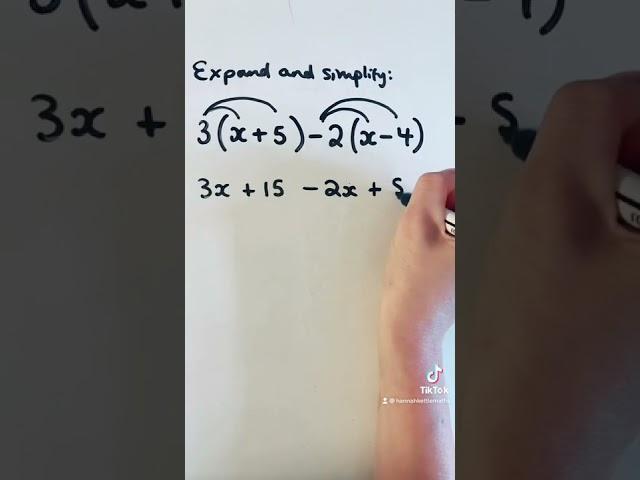 Expand and simplify:
3(x+5)-2(x-4)
3x +15 -2x +
TikTok